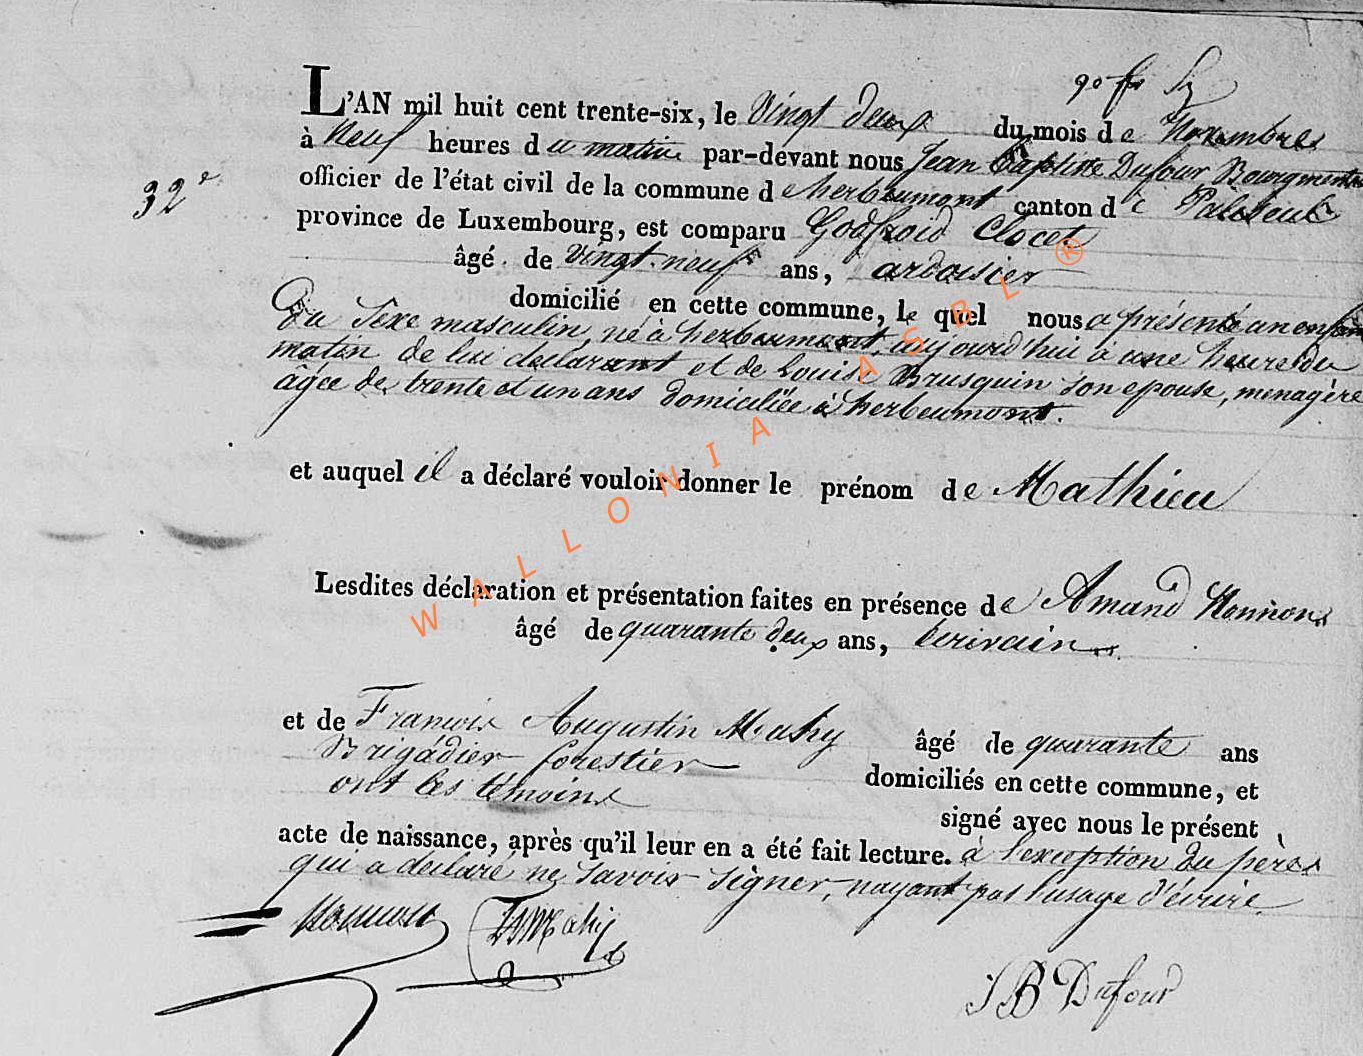 L'AN mil huit cent trente-six, le Vingt deux du mois de Novembre
à Neuf heures du matin par-devant nous Jean Baptiste Dufour Bourgmestre
32e
officier de l'état civil de la commune d'herbeumont canton de Paliseul
province de Luxembourg, est comparu Godfroid Clocet
âgé de Vingt-neuf ans, ardoisier
domicilié en cette commune, le quel nous a présenté un enfant
Du Sexe masculin, né à herbeumont, aujourd'hui à une heure du
matin de lui déclarant et de Louise Brusquin son epouse, menagère
âgée de trente et un ans domiciliée à herbeumont.
et auquel il a déclaré vouloir donner le prénom de Mathieu
Lesdites déclaration et présentation faites en présence de Amand Honnon
âgé de quarante deux ans, Ecrivain
et de Francois Augustin Mahy âgé de quarante ans
Brigadier forestier domiciliés en cette commune, et
ont les témoins signé avec nous le présent
acte de naissance, après qu'il leur en a été fait lecture. à l'exception du père
qui a declaré ne savoir signer, nayant pas l'usage d'écrire.
Honnon Mahy
JB Dufour
WALLONIA ASBL ®